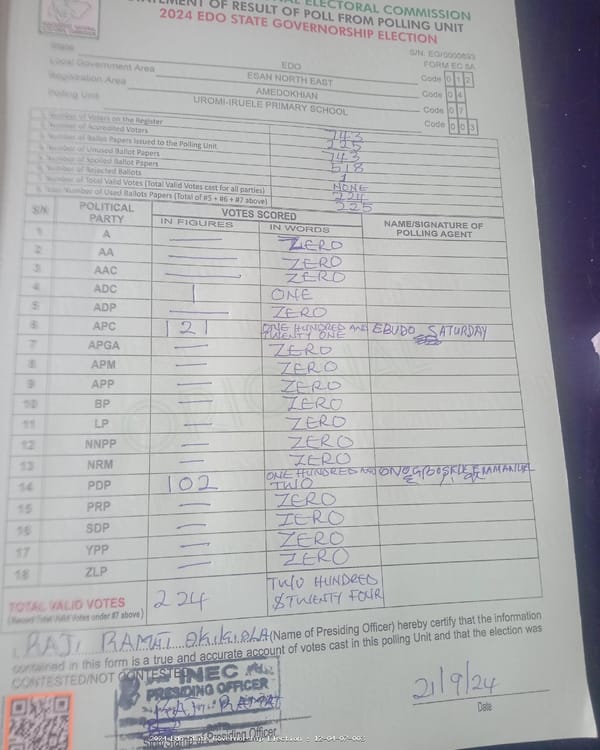 ELECTORAL COMMISSION
STATEMENT OF RESULT OF POLL FROM POLLING UNIT
2024 EDO STATE GOVERNORSHIP ELECTION
S/N: EG/0000693
FORM EC 8A
State EDO Code 0 1 2
Local Government Area ESAN NORTH EAST Code 0 4
Registration Area AMEDOKHIAN Code 0 7
Polling Unit UROMI-IRUELE PRIMARY SCHOOL Code 0 0 3
Number of Voters on the Register 743
Number of Accredited Voters 225
Number of Ballot Papers Issued to the Polling Unit 743
Number of Unused Ballot Papers 518
Number of Spoiled Ballot Papers 1
Number of Rejected Ballots NONE
Number of Total Valid Votes (Total Valid Votes cast for all parties) 224
Total Number of Used Ballots Papers (Total of #5 + #6 + #7 above) 225
S/N POLITICAL PARTY VOTES SCORED NAME/SIGNATURE OF POLLING AGENT
IN FIGURES IN WORDS
1 A — ZERO
2 AA — ZERO
3 AAC — ZERO
4 ADC 1 ONE
5 ADP — ZERO
6 APC 121 ONE HUNDRED AND TWENTY ONE EBUDO SATURDAY
7 APGA — ZERO
8 APM — ZERO
9 APP — ZERO
10 BP — ZERO
11 LP — ZERO
12 NNPP — ZERO
13 NRM — ZERO
14 PDP 102 ONE HUNDRED AND TWO
15 PRP — ZERO
16 SDP — ZERO
17 YPP — ZERO
18 ZLP — ZERO
TOTAL VALID VOTES 224 TWO HUNDRED & TWENTY FOUR
(Record Total Valid Votes under #7 above)
I, RAJI RAMAT OKIKIOLA (Name of Presiding Officer) hereby certify that the information
contained in this form is a true and accurate account of votes cast in this polling Unit and that the election was
CONTESTED/NOT CONTESTED
INEC
PRESIDING OFFICER
RAJI RAMAT
21/9/24
Date
of Presiding Officer
2024 Edo State Governorship Election - 12-04-07-003